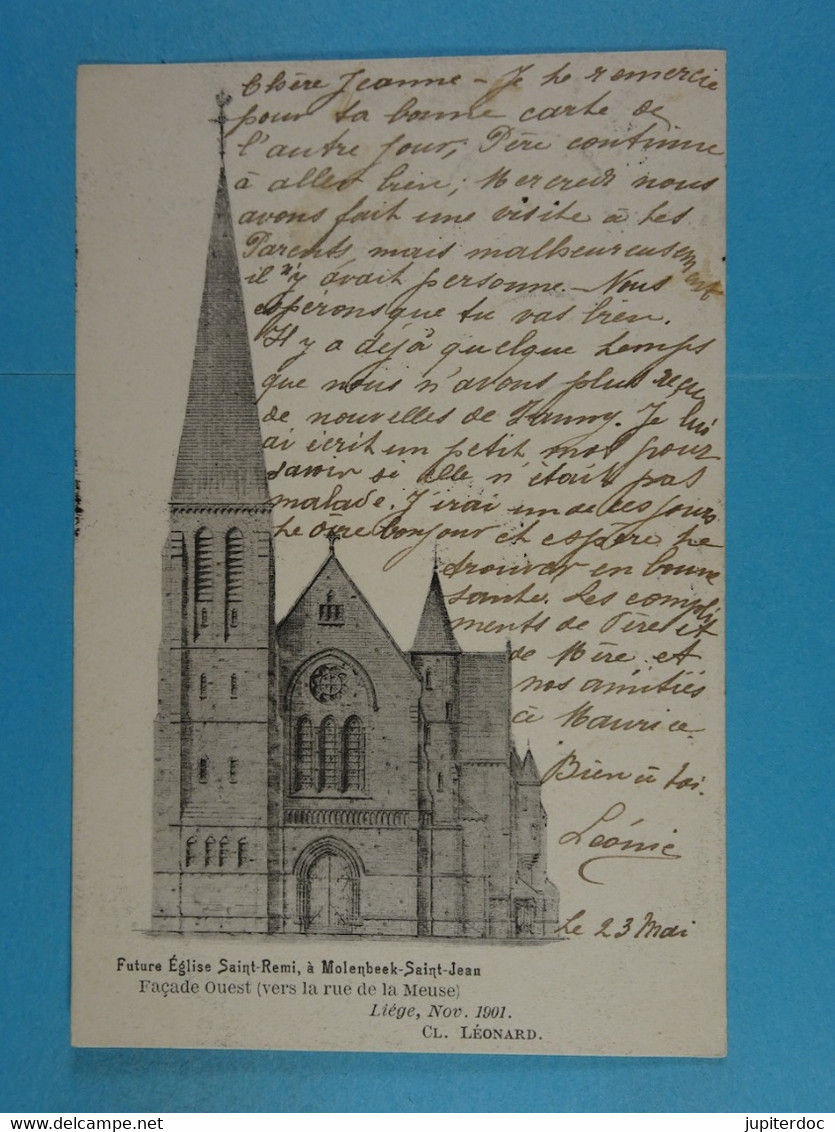 Chère Jeanne - Je te remercie
pour ta bonne carte de
l'autre jour, Père continue
à aller bien; Mercredi nous
avons fait une visite à tes
Parents mais malheureusement
il n'y avait personne. - Nous
espérons que tu vas bien.
Il y a déjà quelque temps
que nous n'avons plus reçu
de nouvelles de Fanny. Je lui
ai écrit un petit mot pour
savoir si elle n'était pas
malade. J'irai un de ces jours
te dire bonjour et espère te
trouver en bonne
santé. Les compli
ments de Père et
de Mère et
nos amitiés
à Maurice.
Bien à toi.
Léonie
le 23 Mai
Future Église Saint-Remi, à Molenbeek-Saint-Jean
Façade Ouest (vers la rue de la Meuse)
Liége, Nov. 1901.
CL. LÉONARD.
delcampe.net
jupiterdoc